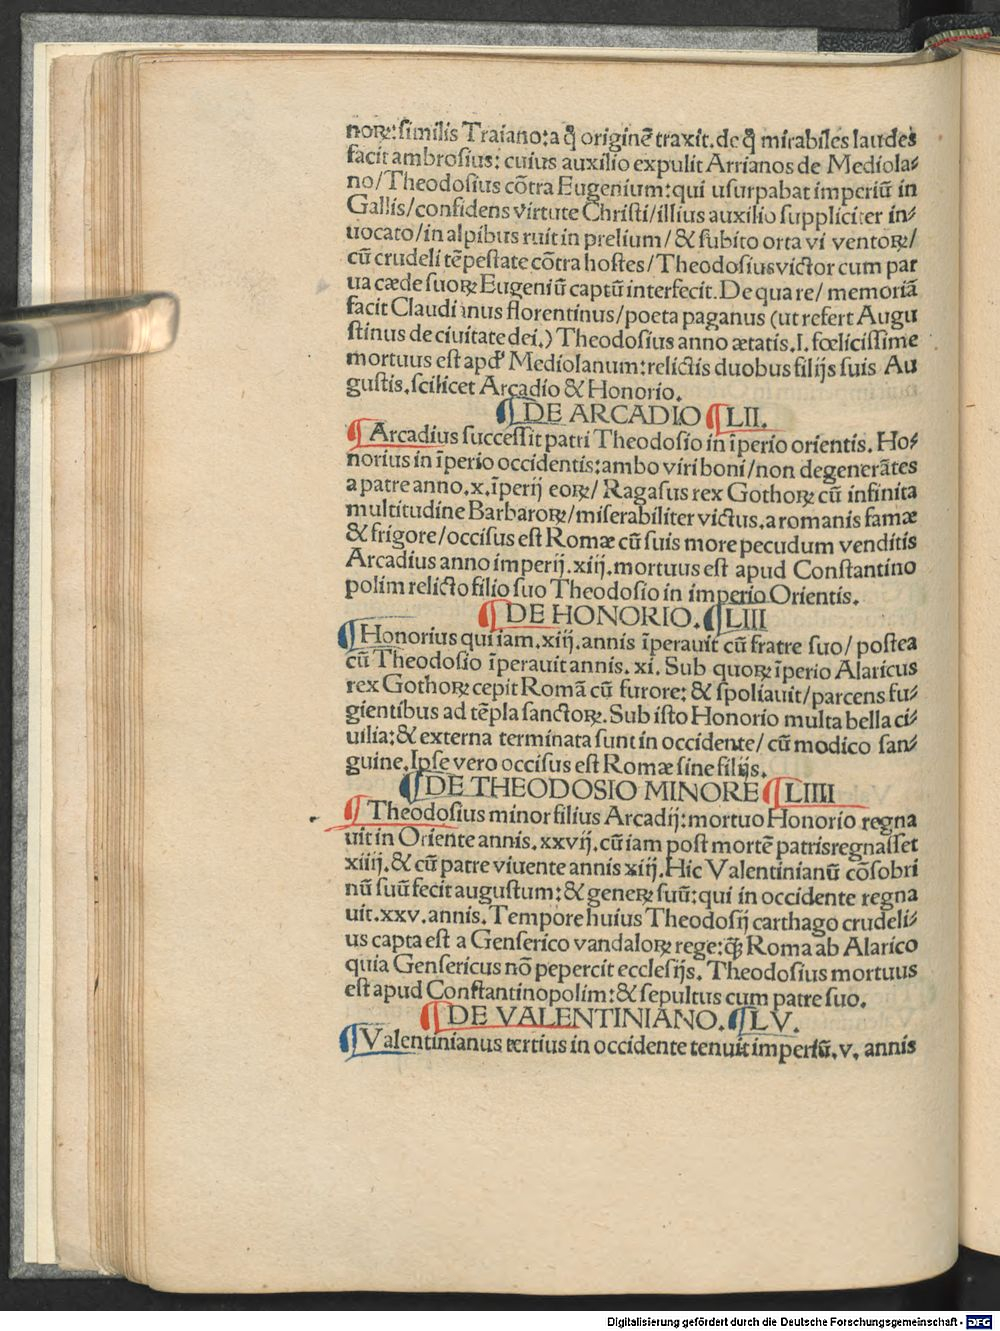 noꝝ: similis Traiano: a q̃ originẽ traxit. de q̃ mirabiles laudes
facit ambrosius: cuius auxilio expulit Arrianos de Mediola⸗
no/Theodosius cõtra Eugenium: qui usurpabat imperiũ in
Gallis/confidens virtute Christi/illius auxilio suppliciter in⸗
uocato/in alpibus ruit in prelium/& subito orta vi ventoꝝ/
cũ crudeli tẽpestate cõtra hostes/Theodosius victor cum par
ua cæde suoꝝ Eugeniũ captũ interfecit. De qua re/ memoriã
facit Claudianus florentinus/poeta paganus (ut refert Augu
stinus de ciuitate dei.) Theodosius anno ætatis. l. fœlicissime
mortuus est apđ Mediolanum: relictis duobus filijs suis Au
gustis. scilicet Arcadio & Honorio.
¶ DE ARCADIO ¶ LII.
¶ Arcadius successit patri Theodosio in ĩperio orientis. Ho⸗
norius in ĩperio occidentis: ambo viri boni/non degenerãtes
a patre anno. x. ĩperij eoꝝ/ Ragasus rex Gothoꝝ cũ infinita
multitudine Barbaroꝝ/miserabiliter victus. a romanis famæ
& frigore/occisus est Romæ cũ suis more pecudum venditis
Arcadius anno imperij. xiij. mortuus est apud Constantino
polim relicto filio suo Theodosio in imperio Orientis.
¶ DE HONORIO. ¶ LIII
¶ Honorius qui iam. xiij. annis ĩperauit cũ fratre suo/ postea
cũ Theodosio ĩperauit annis. xi. Sub quoꝝ ĩperio Alaricus
rex Gothoꝝ cepit Romã cũ furore: & spoliauit/parcens fu⸗
gientibus ad tẽpla sanctoꝝ. Sub isto Honorio multa bella ci⸗
uilia: & externa terminata sunt in occidente/ cũ modico san⸗
guine. Ipse vero occisus est Romæ sine filijs.
¶ DE THEODOSIO MINORE ¶ LIIII
¶ Theodosius minor filius Arcadij: mortuo Honorio regna
uit in Oriente annis. xxvij. cũ iam post mortẽ patris regnasset
xiiij. & cũ patre viuente annis xiij. Hic Valentinianũ cõsobri
nũ suũ fecit augustum: & geneꝝ suũ: qui in occidente regna
uit. xxv. annis. Tempore huius Theodosij carthago crudeli⸗
us capta est a Genserico vandaloꝝ rege: q̃ꝫ Roma ab Alarico
quia Gensericus nõ pepercit ecclesijs. Theodosius mortuus
est apud Constantinopolim: & sepultus cum patre suo.
¶ DE VALENTINIANO. ¶ LV.
¶ Valentinianus tertius in occidente tenuit imperiũ. v. annis
Digitalisierung gefördert durch die Deutsche Forschungsgemeinschaft - DFG